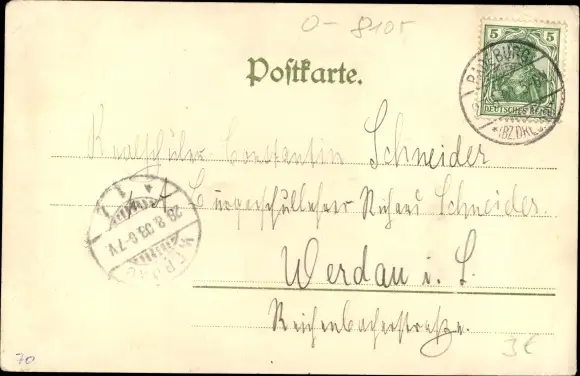 0-8105
5 5
DEUTSCHES REICH
(BZ.DRE
Postkarte.
Realschüler Constantin Schneider
Bürgerschullehrer Richard Schneider.
28.8.03.6-7V
WERDAU
Werdau i. S.
Reichenbacherstraße.
3€
70